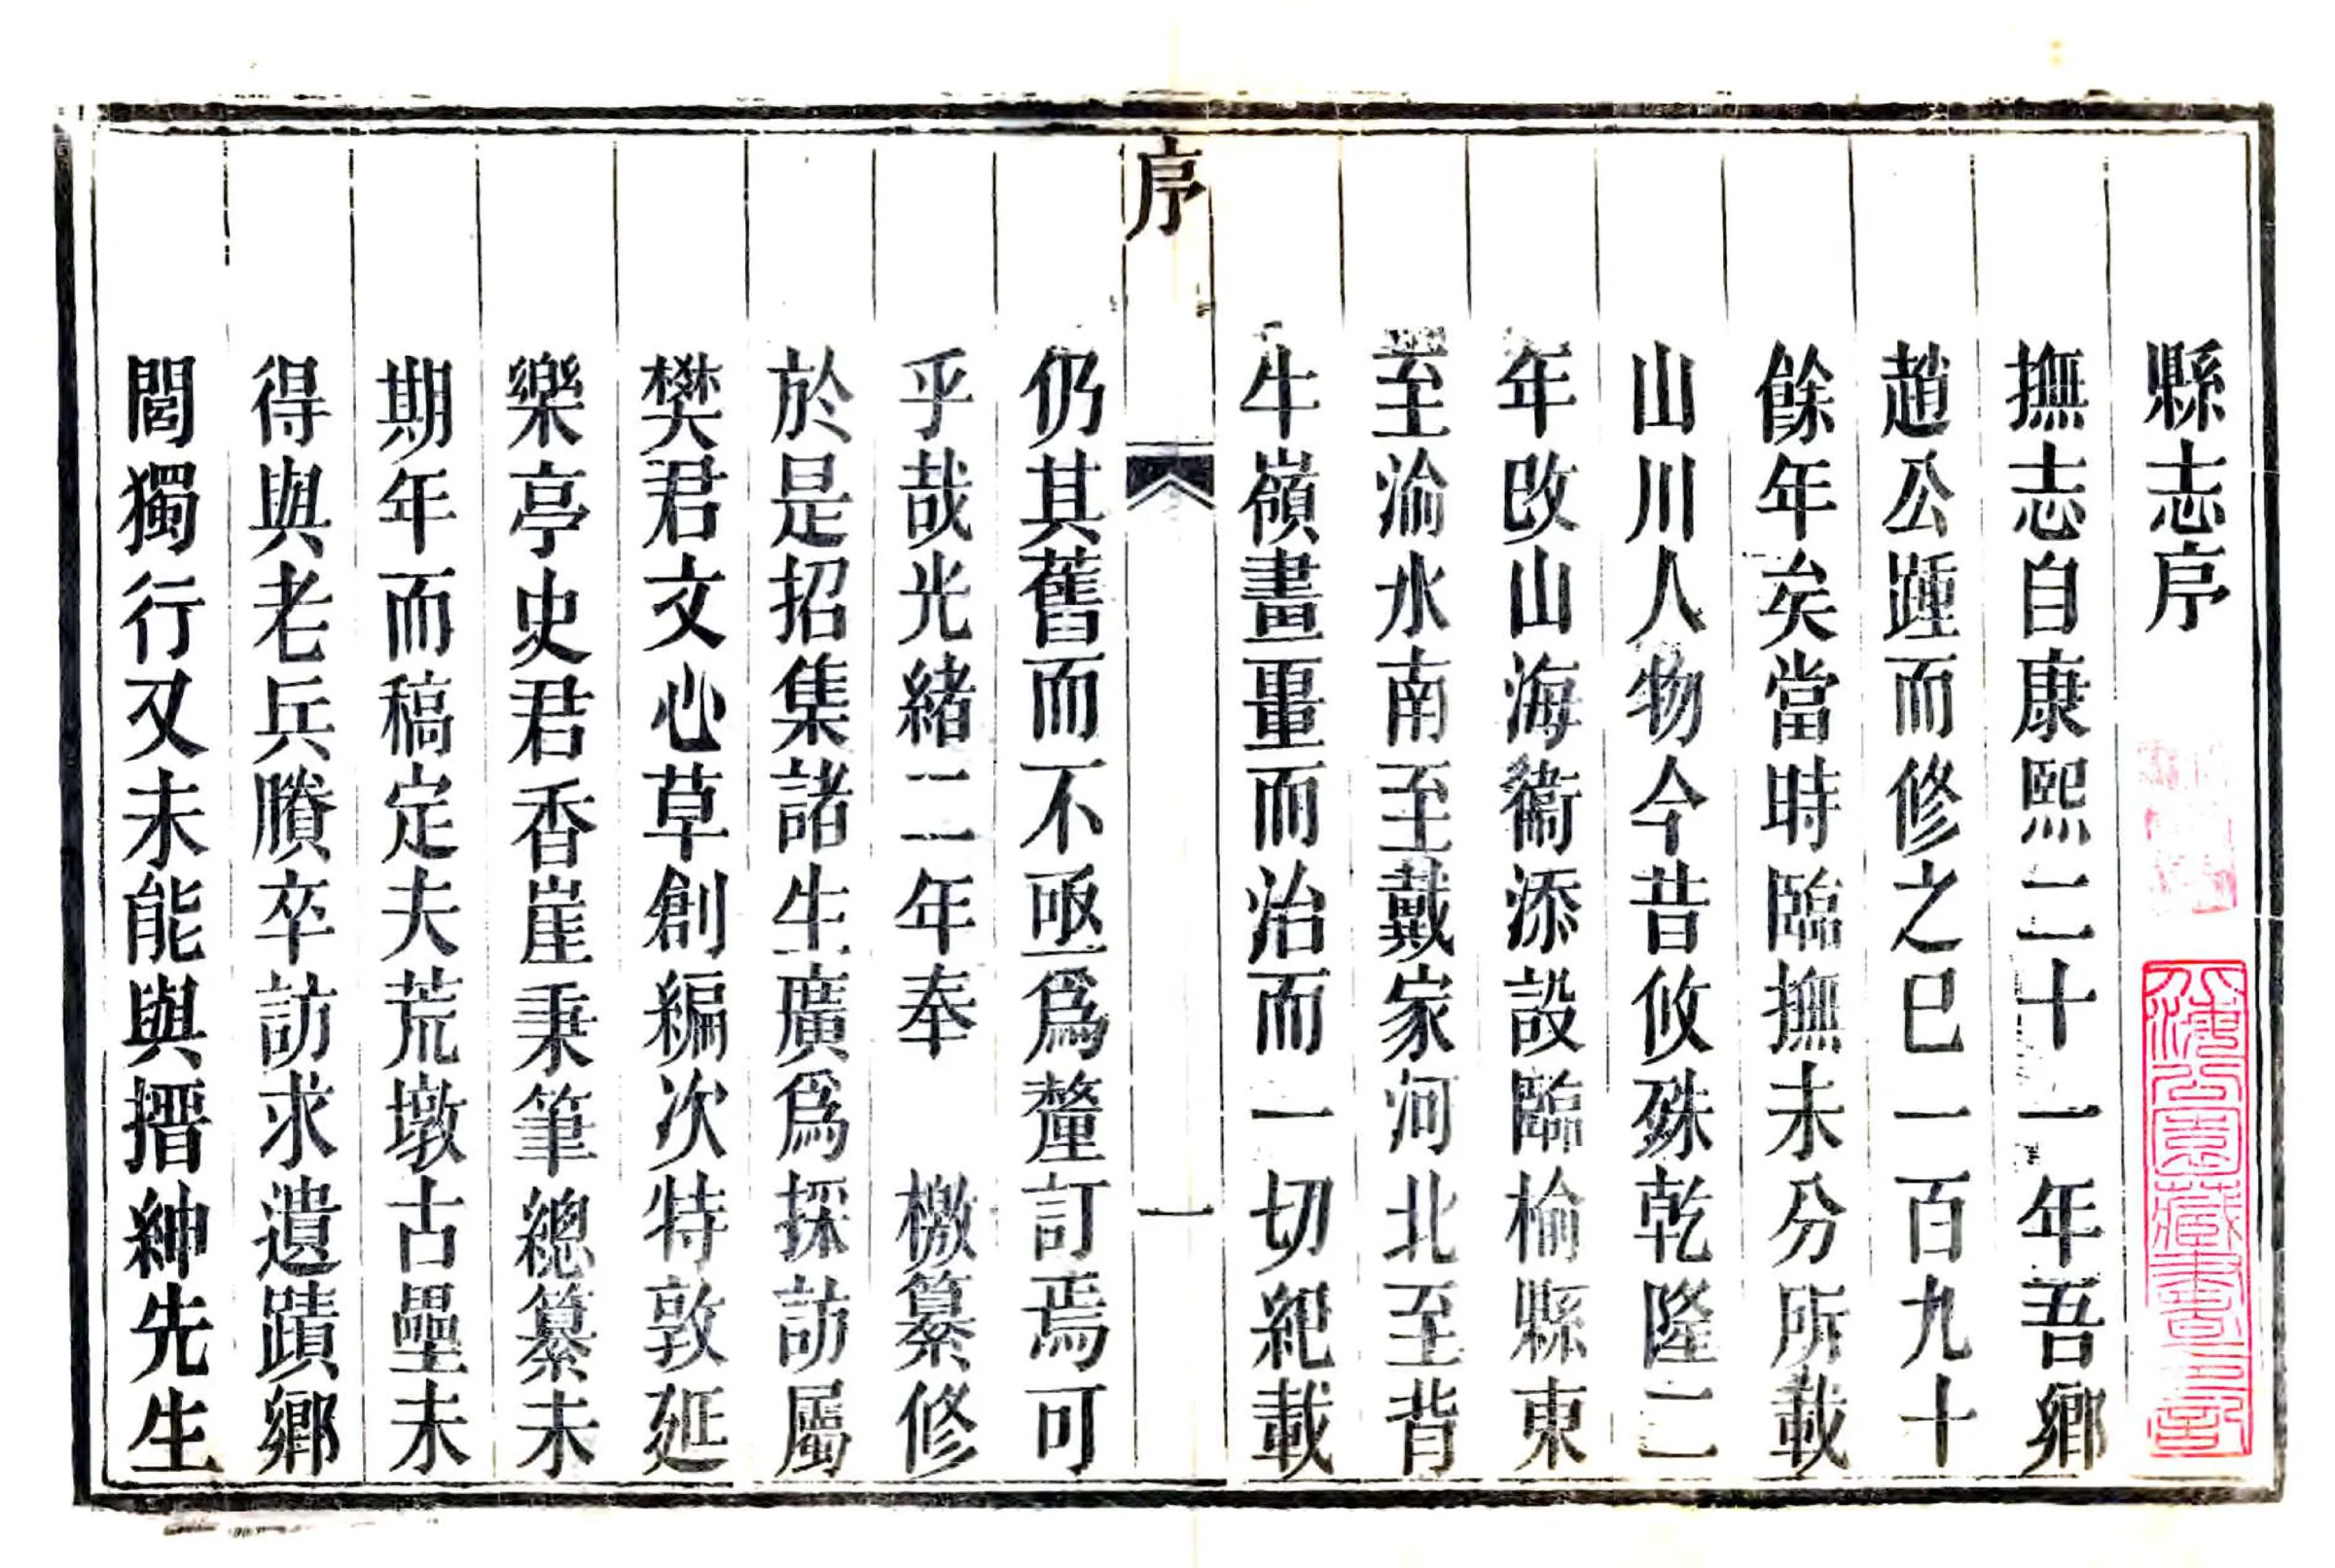 縣志序
撫志自康熙二十一年吾鄉
趙公踵而修之已一百九十
餘年矣當時臨撫未分所載
山川人物今昔攸殊乾隆二
年改山海衞添設臨榆縣東
至渝水南至戴家河北至背
牛嶺畫畺而治而一切紀載
序
一
仍其舊而不亟爲釐訂焉可
乎哉光緒二年奉 檄纂修
於是招集諸生廣爲採訪屬
樊君文心草創編次特敦延
樂亭史君香崖秉筆總纂未
期年而稿定夫荒墩古壘未
得與老兵賸卒訪求遺蹟鄉
閭獨行又未能與搢紳先生